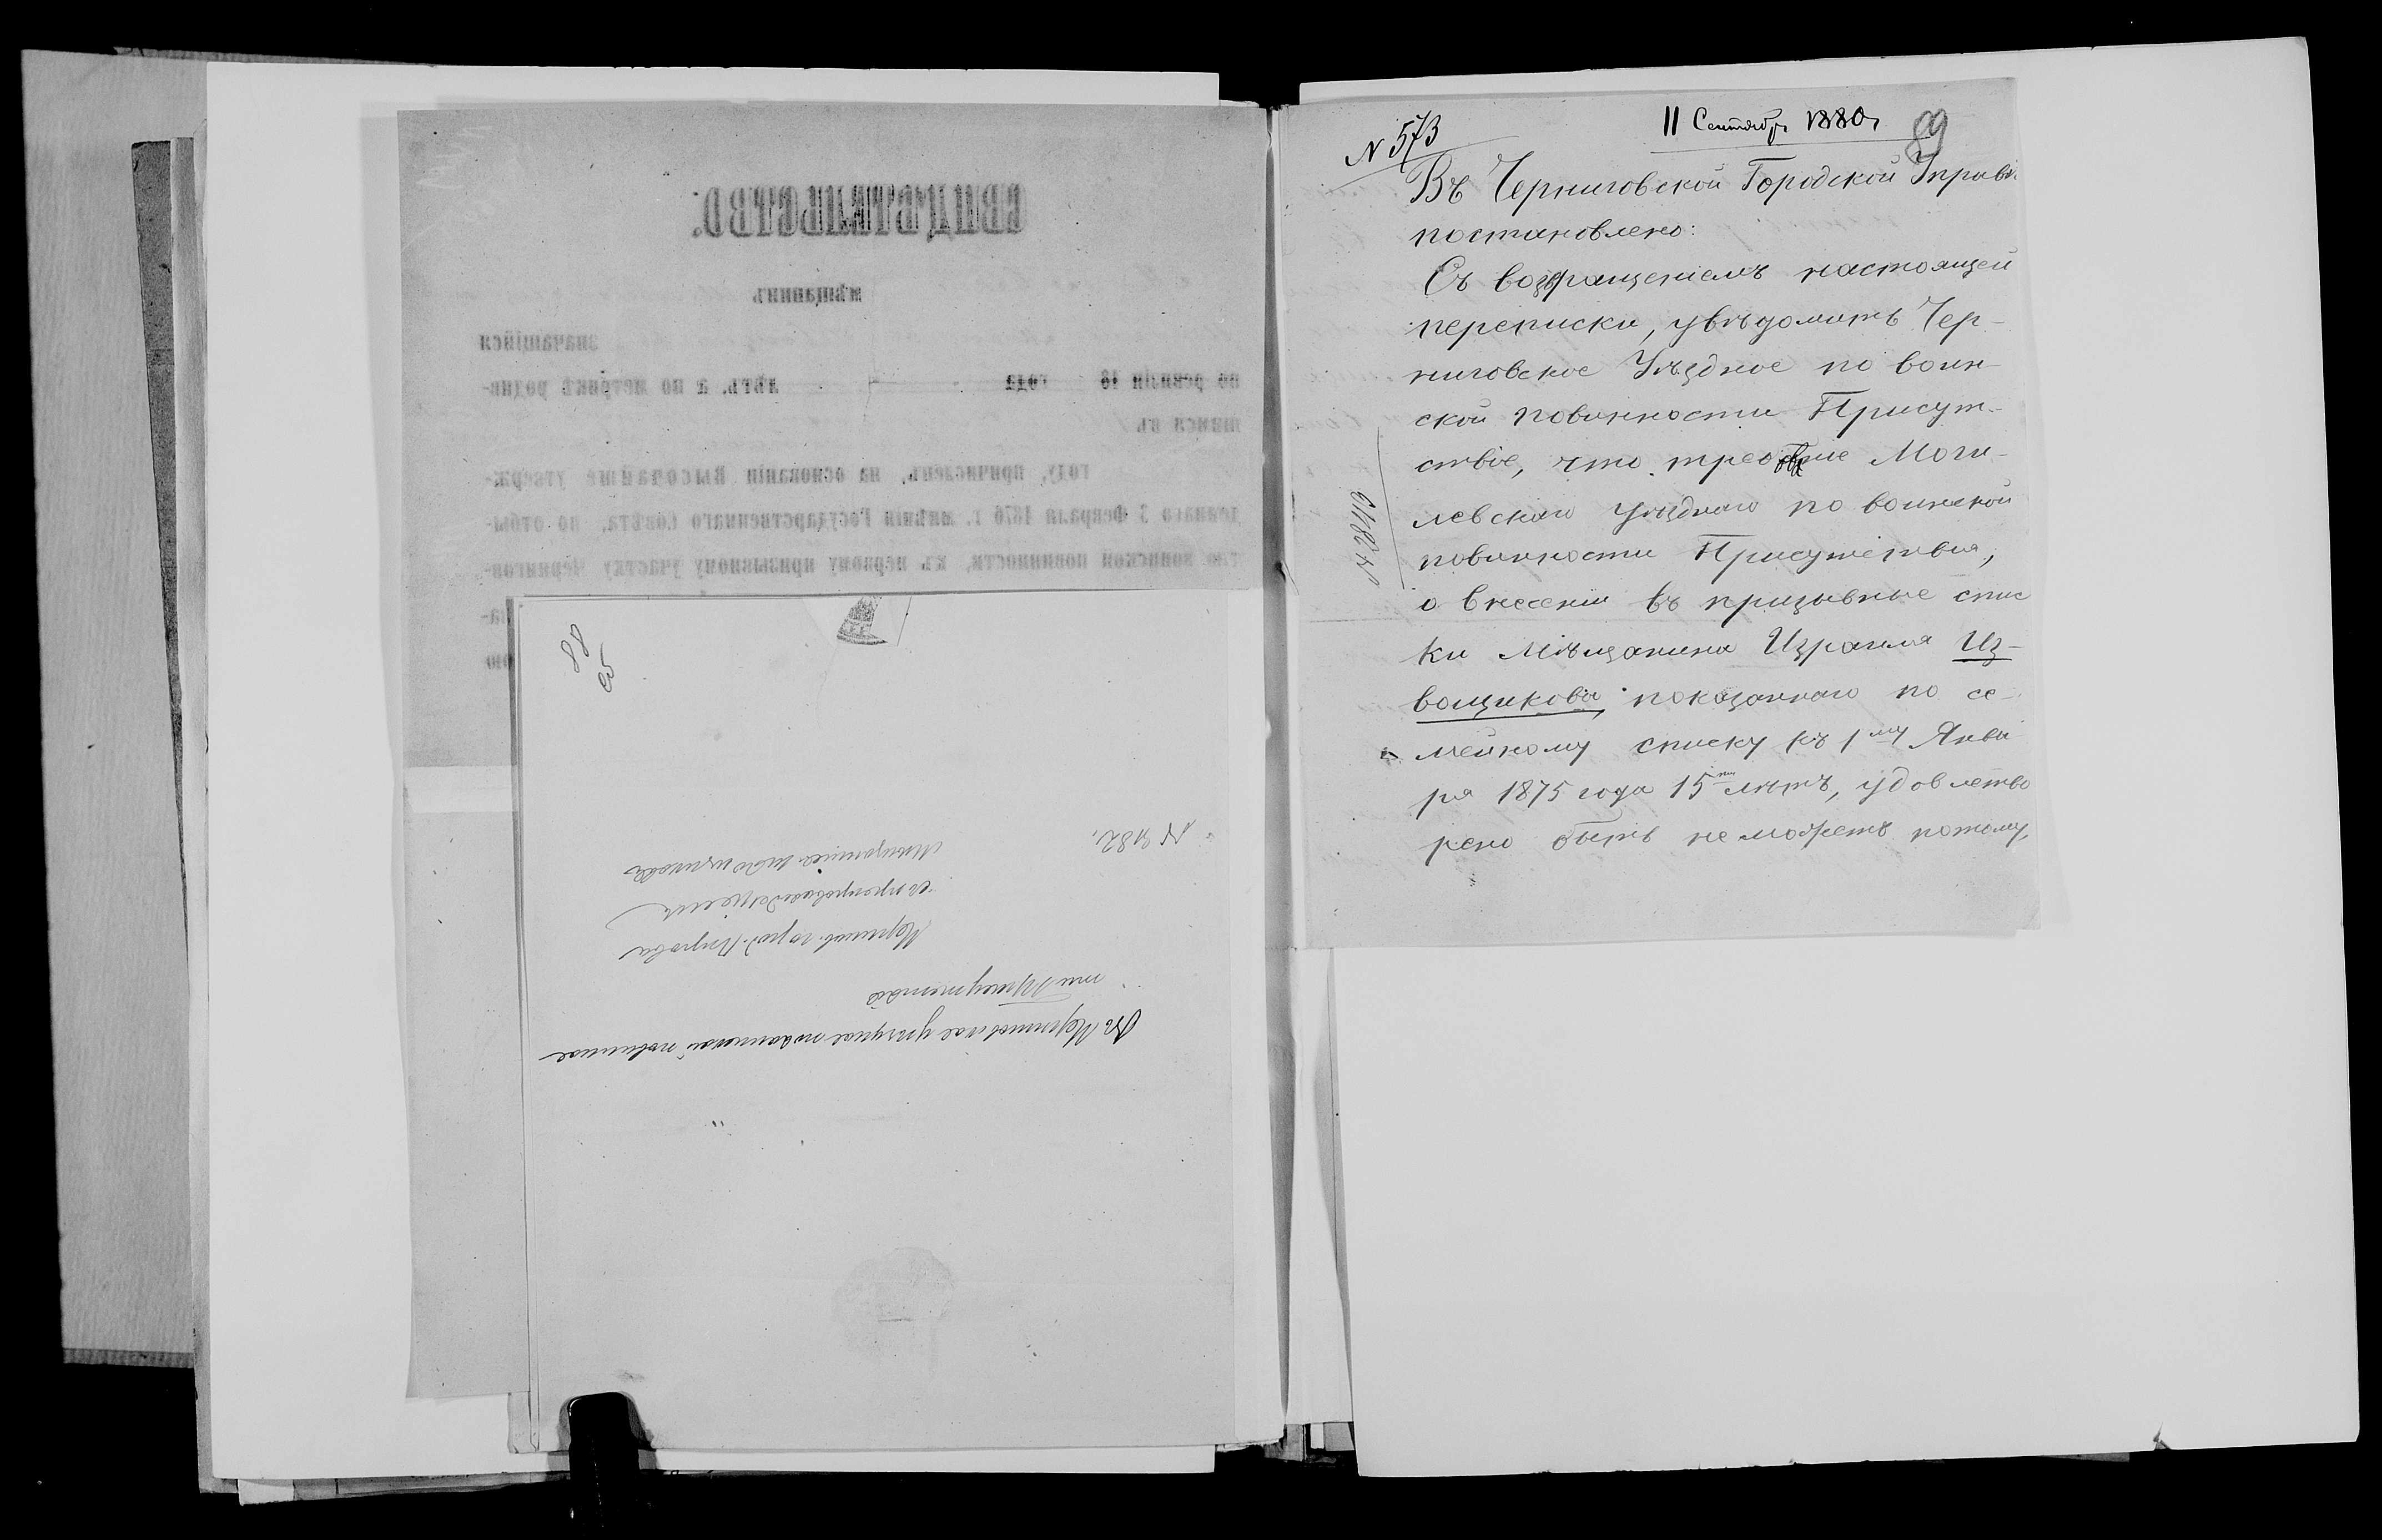 СВИДѢТЕЛЬСТВО.
мѣщанинъ
значащійся
по ревизіи 18 года лѣтъ, а по метрикѣ родив-
шимся въ
году, причисленъ, на основаніи Высочайше утверж-
деннаго 3 Февраля 1876 г. мнѣнія Государственнаго Совѣта, по отбы-
тію воинской повинности, къ первому призывному участку Чернигов-
88
Въ Черниговское уѣздное по воинской повиннос
ти Присутствіе
Чернигов. город. Управы
съ препровожденіемъ
№ 982.
№ 573
11 Сентябр 1880 г
89
Въ Черниговской Городской Управѣ
постановлено:
Съ возвращеніемъ настоящей
переписки, увѣдомить Чер-
ниговское Уѣздное по воин-
ской повинности Присут-
ствіе, что требованіе Моги-
левскаго уѣзднаго по воинской
повинности Присутствія,
о внесеніи въ призывные спис
ки Мѣщанина Израиля Из-
вощикова, показаннаго по се-
мейному списку къ 1му Янва
ря 1875 года 15ти лѣтъ, удовлетво
рено быть не можетъ потому,